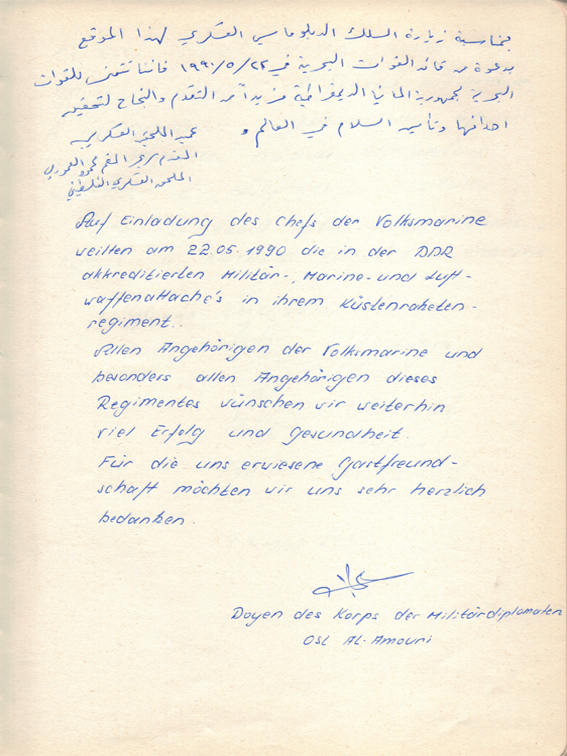 بمناسبة زيارة السلك الدبلوماسي العسكري لهذا الموقع
بدعوة من قائد القوات البحرية في ١٩٩٠/٥/٢٢ فاننا نتمنى للقوات
البحرية لجمهورية المانيا الديمقراطية مزيداً من التقدم والنجاح لتحقيق
اهدافها وتأمين السلام في العالم .
عميد الملحقين العسكريين
المقدم محمود العموري
الملحق العسكري الفلسطيني
Auf Einladung des Chefs der Volksmarine
weilten am 22.05.1990 die in der DDR
akkreditierten Militär-, Marine- und Luft-
waffenattaché's in ihrem Küstenraketen-
regiment.
Allen Angehörigen der Volksmarine und
besonders allen Angehörigen dieses
Regimentes wünschen wir weiterhin
viel Erfolg und Gesundheit.
Für die uns erwiesene Gastfreund-
schaft möchten wir uns sehr herzlich
bedanken.
Doyen des Korps der Militärdiplomaten
OSL AL-Amouri